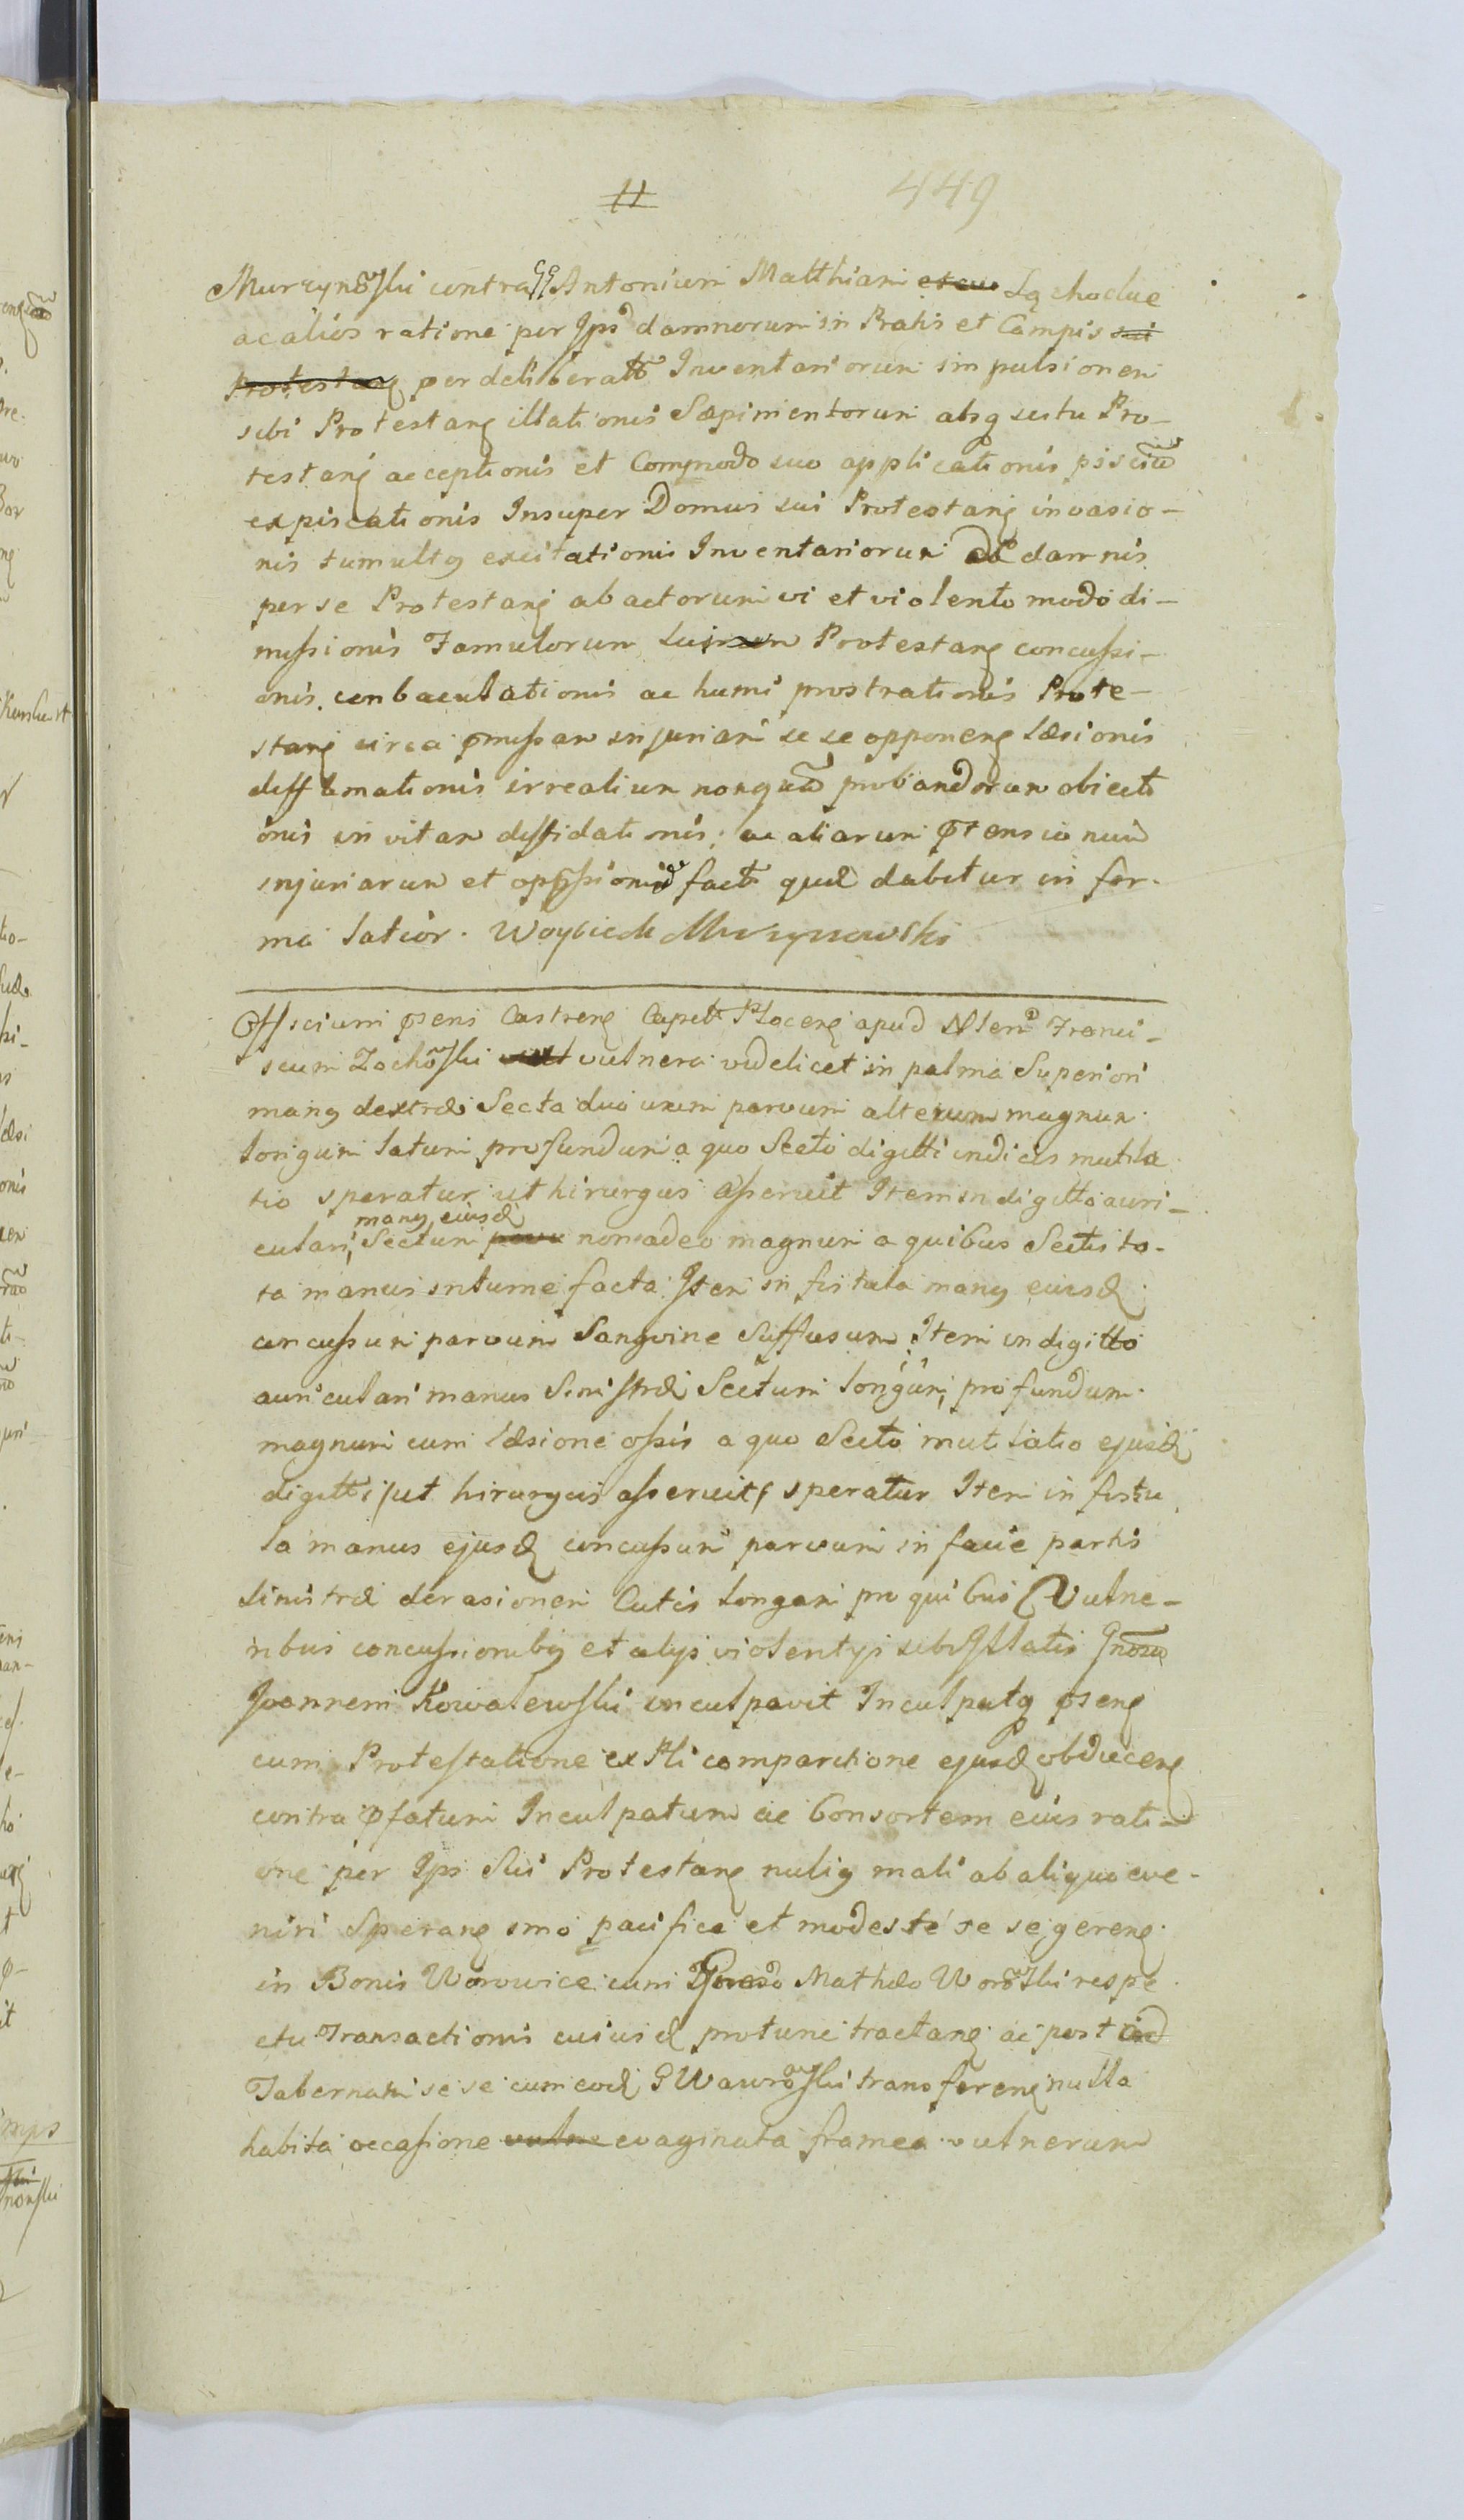 11
449
Murzynowski contra GG Antonium Matthiam Lącholue
ac alios ratione per Ips damnorum in Pratis et Campis sui
Protestang per deliberatt Inventariorum impulsionem
sibi Protestang illationis Sæpimentorum absq scitu Pro-
testang acceptionis et Commodo suo applicationis pisciu
expiscationis Insuper Domus sui Protestang invasio-
nis tumultq excitationis Inventariorum de damnis
per se Protestang abactorum vi et violento modo di-
missionis Famulorum sui Protestang concussi-
onis conbaculationis ac humi prostrationis Prote-
stang circa pmissam injuriam se se opponeng læsionis
diffamationis irrealium nonqua probandorum obiecti
onis in vitam diffidationis; ac aliarum ptensionum
injuriarum et oppssionu fact quæ dabitur in for-
ma latior. Woyciech Murzynowski
Officium psens Castreng Capit Ploceng apud Franci-
scum Zochowski vulnera videlicet in palma Superiori
manq dextræ Secta duo unum parvum alterum magnum
longum latum profundum a quo Secto digitti indicis mutila
tio speratur ut hirurgus asseruit Item in digitto auri-
manq eiusd
culari, Sectum parvu non adeo magnum a quibus Sectis to-
ta manus intumefacta Item in fistula manq eiusd
concussum parvum Sangvine Suffusum Item in digitto
auriculari manus Sinistræ Sectum longum, profundum
magnum cum læsione ossis a quo Secto mutilatio ejusd
digitti /ut hirurgus asseruit/ speratur Item in fistu
la manus ejusd concussum parvum in facie partis
Sinistræ derasionem Cutis longam pro quibus Vulne-
ribus concussionibq et alijs violentijs sibi Illatis Gnosu
Joannem Kowalewski inculpavit Inculpatq pseng
cum Protestatione ex Pli comparitione ejusd obduceng
contra pfatum Inculpatum ac Consortem eius rati-
one per Ips Sui Protestang nuliq mali ab aliquo eve-
niri Sperang imo pacifice et modeste se se gereng
in Bonis Worowice cum Mathæo Worowski respe
ctu Transactionis cuiusd protunc tractang ac post ad
Tabernam se se cum eod G Wawrowski transfereng nulla
habita occasione vulne evaginata framea vulnerum